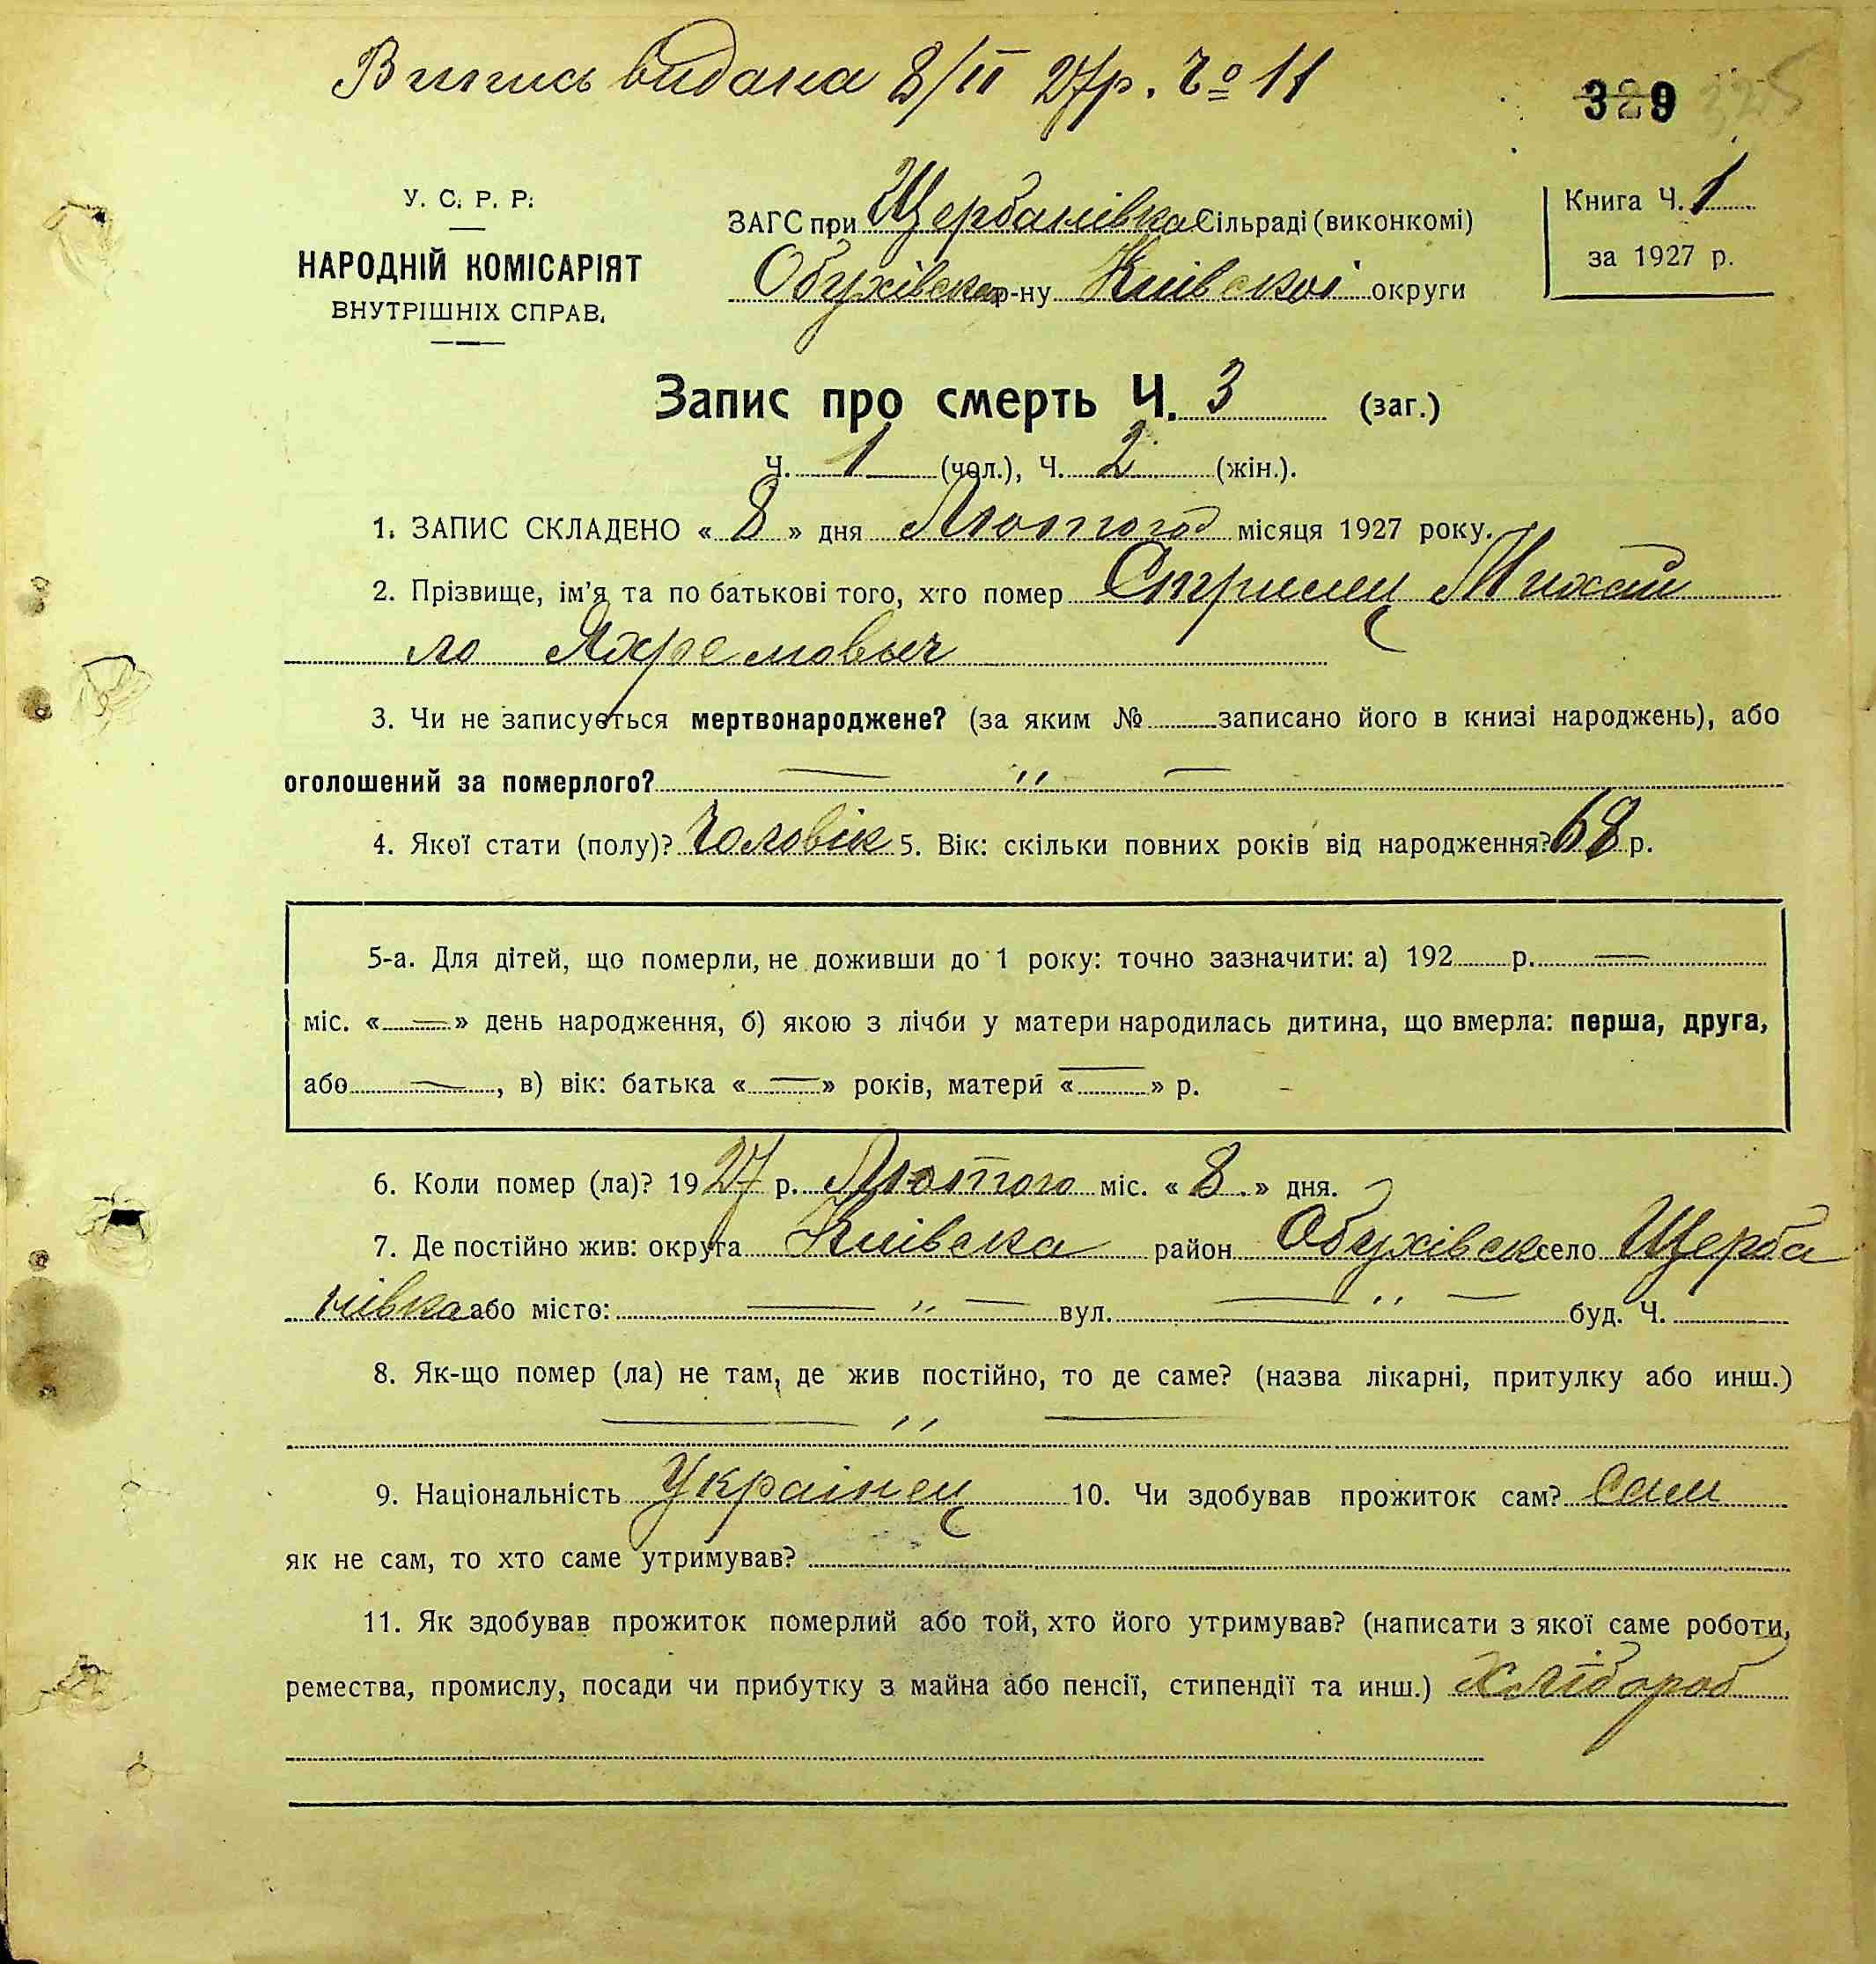 Випись видана 8/II 27р. Ч⁰ 11
329 325
У. С. Р. Р.
НАРОДНІЙ КОМІСАРІЯТ
ВНУТРІШНІХ СПРАВ.
ЗАГС при Щербанівка Сільраді (виконкомі)
Обухівська р-ну Київскої округи
Книга Ч. 1
за 1927 р.
Запис про смерть Ч. 3 (заг.)
Ч. 1 (чол.), Ч. 2 (жін.).
1. ЗАПИС СКЛАДЕНО « 8 » дня Лютого місяця 1927 року.
2. Прізвище, ім'я та по батькові того, хто помер Стрилец Михай
ло Яхремовыч
3. Чи не записується мертвонароджене? (за яким № записано його в книзі народжень), або
оголошений за померлого? — " —
4. Якої стати (полу)? Чоловік 5. Вік: скільки повних років від народження? 68 р.
5-а. Для дітей, що померли, не доживши до 1 року: точно зазначити: а) 192 р. —
міс. « — » день народження, б) якою з лічби у матери народилась дитина, що вмерла: перша, друга,
або —, в) вік: батька « — » років, матери « — » р.
6. Коли помер (ла)? 1927 р. Лютого міс. « 8 » дня.
7. Де постійно жив: округа Київска район Обухівск село Щерба
нівка або місто: — " — вул. — " — буд. Ч.
8. Як-що помер (ла) не там, де жив постійно, то де саме? (назва лікарні, притулку або инш.)
— " —
9. Національність Українец 10. Чи здобував прожиток сам? Сам
як не сам, то хто саме утримував?
11. Як здобував прожиток померлий або той, хто його утримував? (написати з якої саме роботи,
ремества, промислу, посади чи прибутку з майна або пенсії, стипендії та инш.) Хлібороб